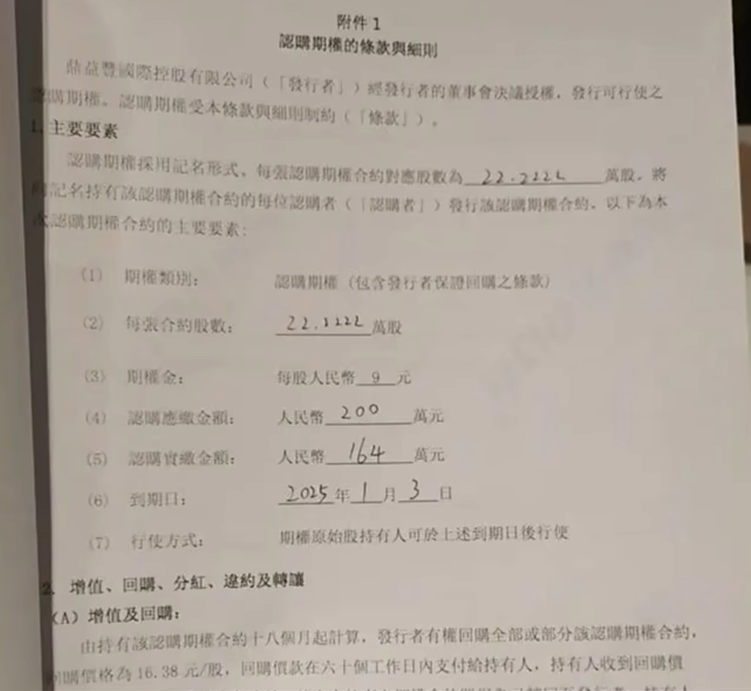 附件 1
認購期權的條款與細則
鼎益豐國際控股有限公司（「發行者」）經發行者的董事會決議授權，發行可行使之
認購期權。認購期權受本條款與細則制約（「條款」）。
1. 主要要素
認購期權採用記名形式、每張認購期權合約對應股數為 22.2222 萬股，將
向記名持有該認購期權合約的每位認購者（「認購者」）發行該認購期權合約、以下為本
次認購期權合約的主要要素：
（1） 期權類別： 認購期權（包含發行者保證回購之條款）
（2） 每張合約股數： 22.2222 萬股
（3） 期權金： 每股人民幣 9 元
（4） 認購應繳金額： 人民幣 200 萬元
（5） 認購實繳金額： 人民幣 164 萬元
（6） 到期日： 2025 年 1 月 3 日
（7） 行使方式： 期權原始股持有人可於上述到期日後行使
2. 增值、回購、分紅、違約及轉讓
（A）增值及回購：
由持有該認購期權合約十八個月起計算，發行者有權回購全部或部分該認購期權合約，
回購價格為 16.38 元/股，回購價款在六十個工作日內支付給持有人，持有人收到回購價